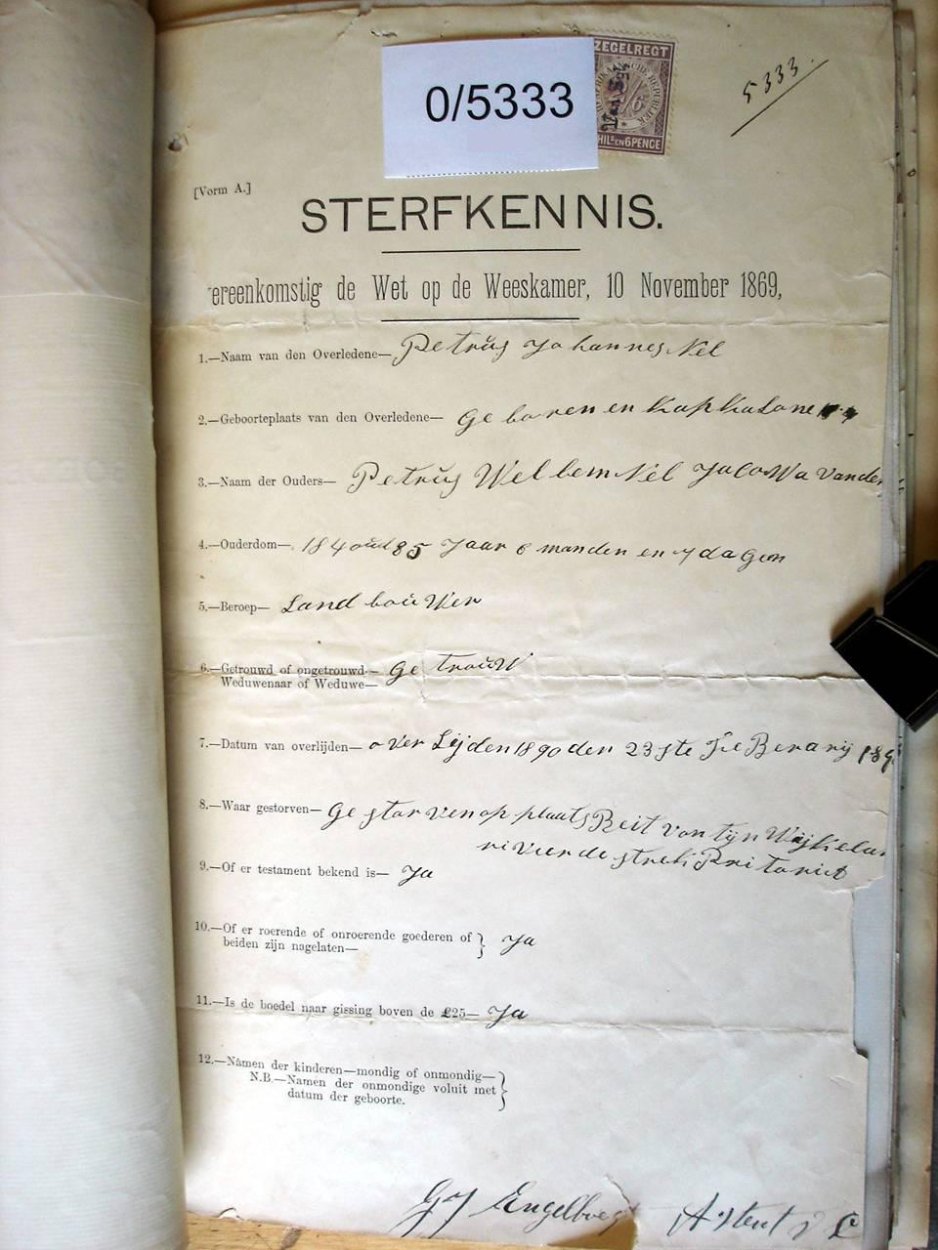 0/5333
ZEGELREGT
5333.
EN 6 PENCE
[Vorm A.]
STERFKENNIS.
ereenkomstig de Wet op de Weeskamer, 10 November 1869,
1.—Naam van den Overledene— Petrus Johannes Nel
2.—Geboorteplaats van den Overledene— Ge boren en
3.—Naam der Ouders— Petrus Wellem Nel Jacowa vander
4.—Ouderdom— oud 85 Jaar 6 manden en 7 dagen
5.—Beroep— Land bouwer
6.—Getrouwd of ongetrouwd— Ge trouw
Weduwenaar of Weduwe—
7.—Datum van overlijden— over Lijden 1890 den 23ste Fe Berarij
8.—Waar gestorven— Ge storven op plaats
rivier de strek
9.—Of er testament bekend is— Ja
10.—Of er roerende of onroerende goederen of } Ja
beiden zijn nagelaten—
11.—Is de boedel naar gissing boven de £25— Ja
12.—Namen der kinderen—mondig of onmondig— }
N.B.—Namen der onmondige voluit met
datum der geboorte.
GJ